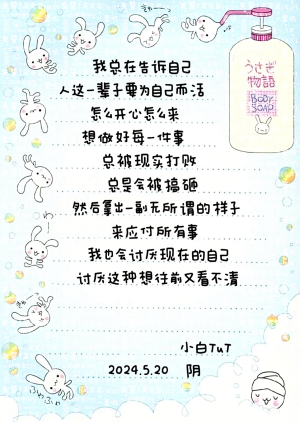 うさぎ
物語
BODY
SOAP
我总在告诉自己
人这一辈子要为自己而活
怎么开心怎么来
想做好每一件事
总被现实打败
总是会被搞砸
然后拿出一副无所谓的样子
来应付所有事
我也会讨厌现在的自己
讨厌这种想往前又看不清
小白TuT
2024.5.20 阴
ふわふわ